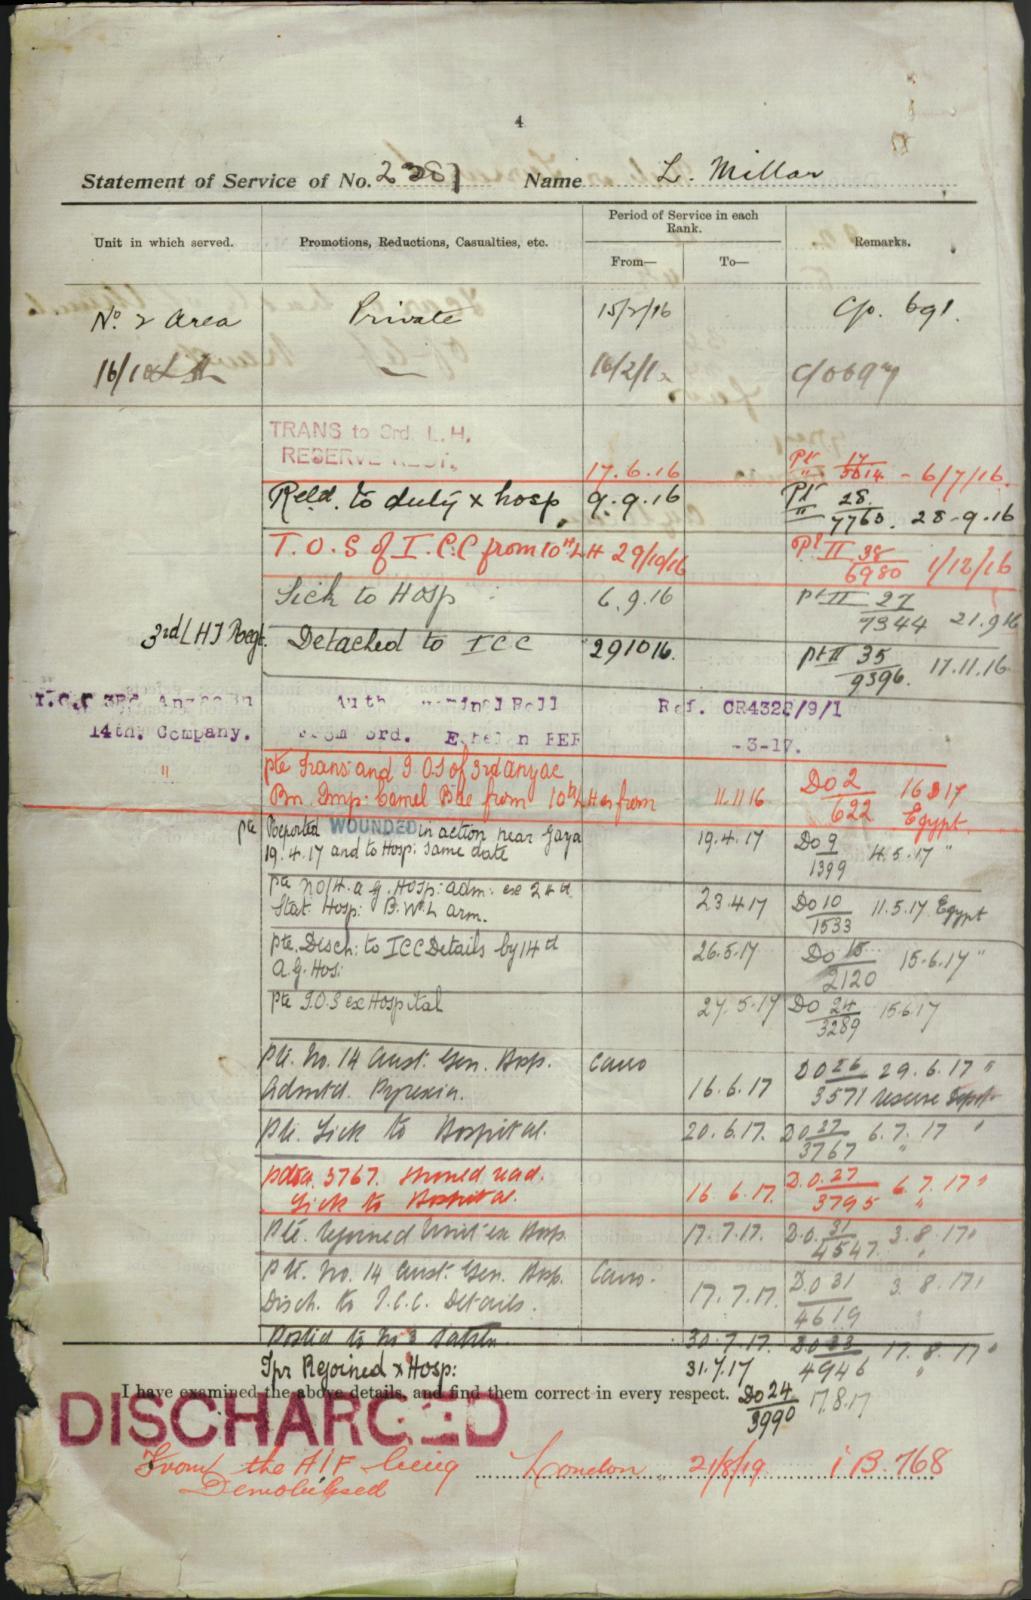 4
Statement of Service of No. 2381 Name L. Millar
Unit in which served. Promotions, Reductions, Casualties, etc. Period of Service in each Rank. Remarks.
From— To—
No. 2 Area Private 15/2/16
16/10 16/2/1
TRANS to 3rd. L. H.
RESERVE REGT. 17.6.16 Pt II 17/5614 - 6/7/16.
Retd. to duty x hosp. 9.9.16 Pt II 28/7760. 28-9.16
T.O.S of I.C.C from 10th LH 29/10/16 Pt II 38/6980 1/12/16
Sick to Hosp 6.9.16 pt II 27/7344 21.9.16
3rd LHT Regt. Detached to ICC 291016. pt II 35/9396. 17.11.16
I.C.C 3rd. Anzac Bn Auth. Nominal Roll Ref. CR4322/9/1
14th. Company. from 3rd. Echelon EEF -3-17.
" pte Trans and T.O.S of 3rd Anzac
Bn Imp: Camel Bde from 10th LH as from 11.11.16 Do 2/622 16 3 17 Egypt.
pte Reported WOUNDED in action near Gaza
19.4.17 and to Hosp: same date 19.4.17 Do 9/1399 4.5.17 "
pte No 14. A.G. Hosp: adm: ex 24th
Stat: Hosp: B.W. L arm. 23.4.17 Do 10/1533 11.5.17 Egypt
pte. Disch: to ICC Details by 14th
A.G. Hos: 26.5.17 Do 15/2120 15.6.17 "
pte T.O.S ex Hospital 27.5.17 Do 24/3289 15.6.17
Pte. No. 14 Aust. Gen. Hosp. Cairo
Admtd. Pyrexia. 16.6.17 DO 26/3571 29.6.17 "
Pte. Sick to Hospital. 20.6.17. DO 27/3767 6.7.17 "
3767. should read.
Sick to Hospital. 16.6.17. D.O. 27/3795 6.7.17 "
Pte. rejoined Unit ex Hosp. 17.7.17. D.O. 31/4547. 3.8.17 "
Pte. No. 14 Aust. Gen. Hosp. Cairo.
Disch. to I.C.C. Details. 17.7.17. D.O 31/4619 3.8.17 "
Posted to No 3 30.7.17. DO 33/4946 17.8.17 "
Tpr Rejoined x Hosp: 31.7.17
I have examined the above details, and find them correct in every respect. Do 24/3990 17.8.17
DISCHARGED
From the AIF being London 21/8/19 1B.768
Demobilised